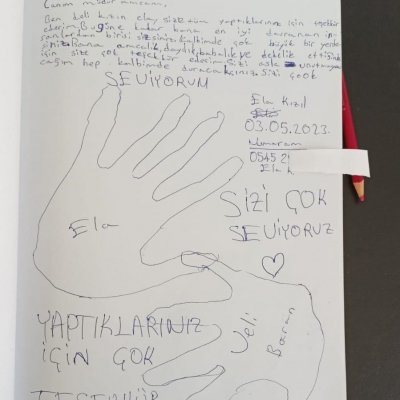 Canım müdür amcam,
Ben deli kızın ela, size tüm yaptıklarınız için teşekkür
ederim. Bugüne kadar bana en iyi davranan in-
sanlardan birisi sizsiniz kalbimde çok büyük bir yerde-
siniz Bana amcalık, dayılık, babalık ve dedelik ettiğiniz
için size çok teşekkür ederim Sizi asla unutmaya-
cağım hep kalbimde duracaksınız Sizi çook
SEVİYORUM
Ela Kızıl
03.05.2023
Numaram
0545 2
Ela K
SİZİ ÇOK
SEVİYORUZ
Ela
YAPTIKLARINIZ
İÇİN ÇOK
TEŞEKKÜR
Veli
Baran